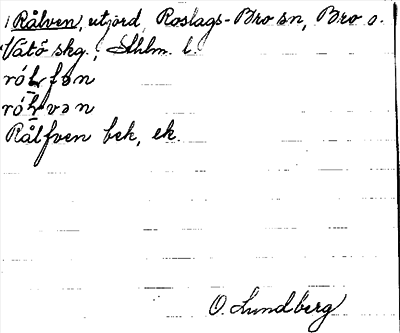 Rålven, utjord, Roslags-Bro sn, Bro o.
Vätö skg., Sthlm. l.
Rålfven bek, ek.
O. Lundberg